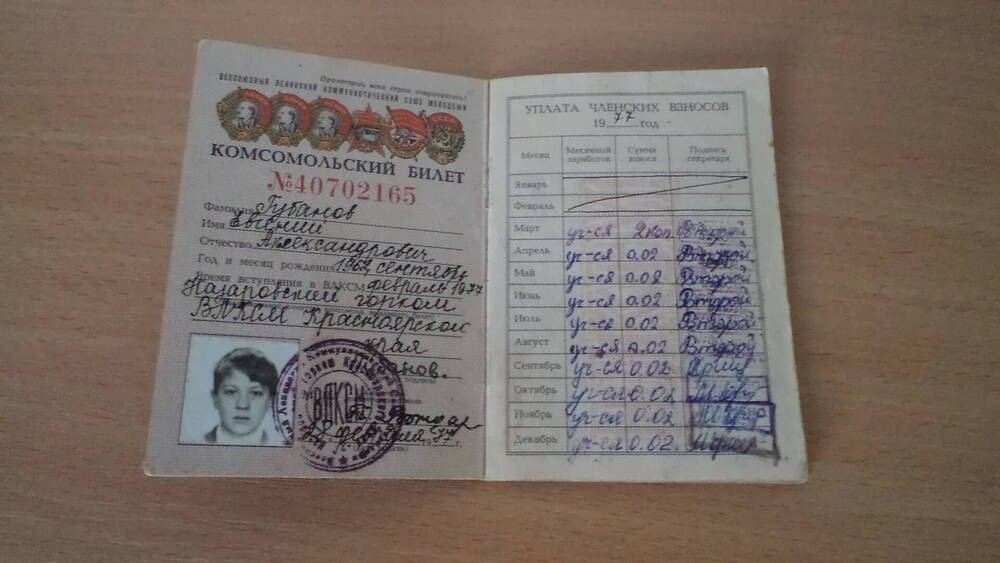 Пролетарии всех стран, соединяйтесь!
ВСЕСОЮЗНЫЙ ЛЕНИНСКИЙ КОММУНИСТИЧЕСКИЙ СОЮЗ МОЛОДЕЖИ
КОМСОМОЛЬСКИЙ БИЛЕТ
№40702165
Фамилия Губанов
Имя Евгений
Отчество Александрович
Год и месяц рождения 1962 сентябрь
Время вступления в ВЛКСМ февраль 1977
Назаровский горком
ВЛКСМ Красноярского
края
ВЛКСМ
УПЛАТА ЧЛЕНСКИХ ВЗНОСОВ
1977 год
Месяц Месячный заработок Сумма взноса Подпись секретаря
Январь
Февраль
Март уч-ся 2 коп. Второй
Апрель уч-ся 0.02 Второй
Май уч-ся 0.02 Второй
Июнь уч-ся 0.02 Второй
Июль уч-ся 0.02 Второй
Август уч-ся 0.02 Второй
Сентябрь уч-ся 0.02
Октябрь уч-ся 0.02
Ноябрь уч-ся 0.02
Декабрь уч-ся 0.02